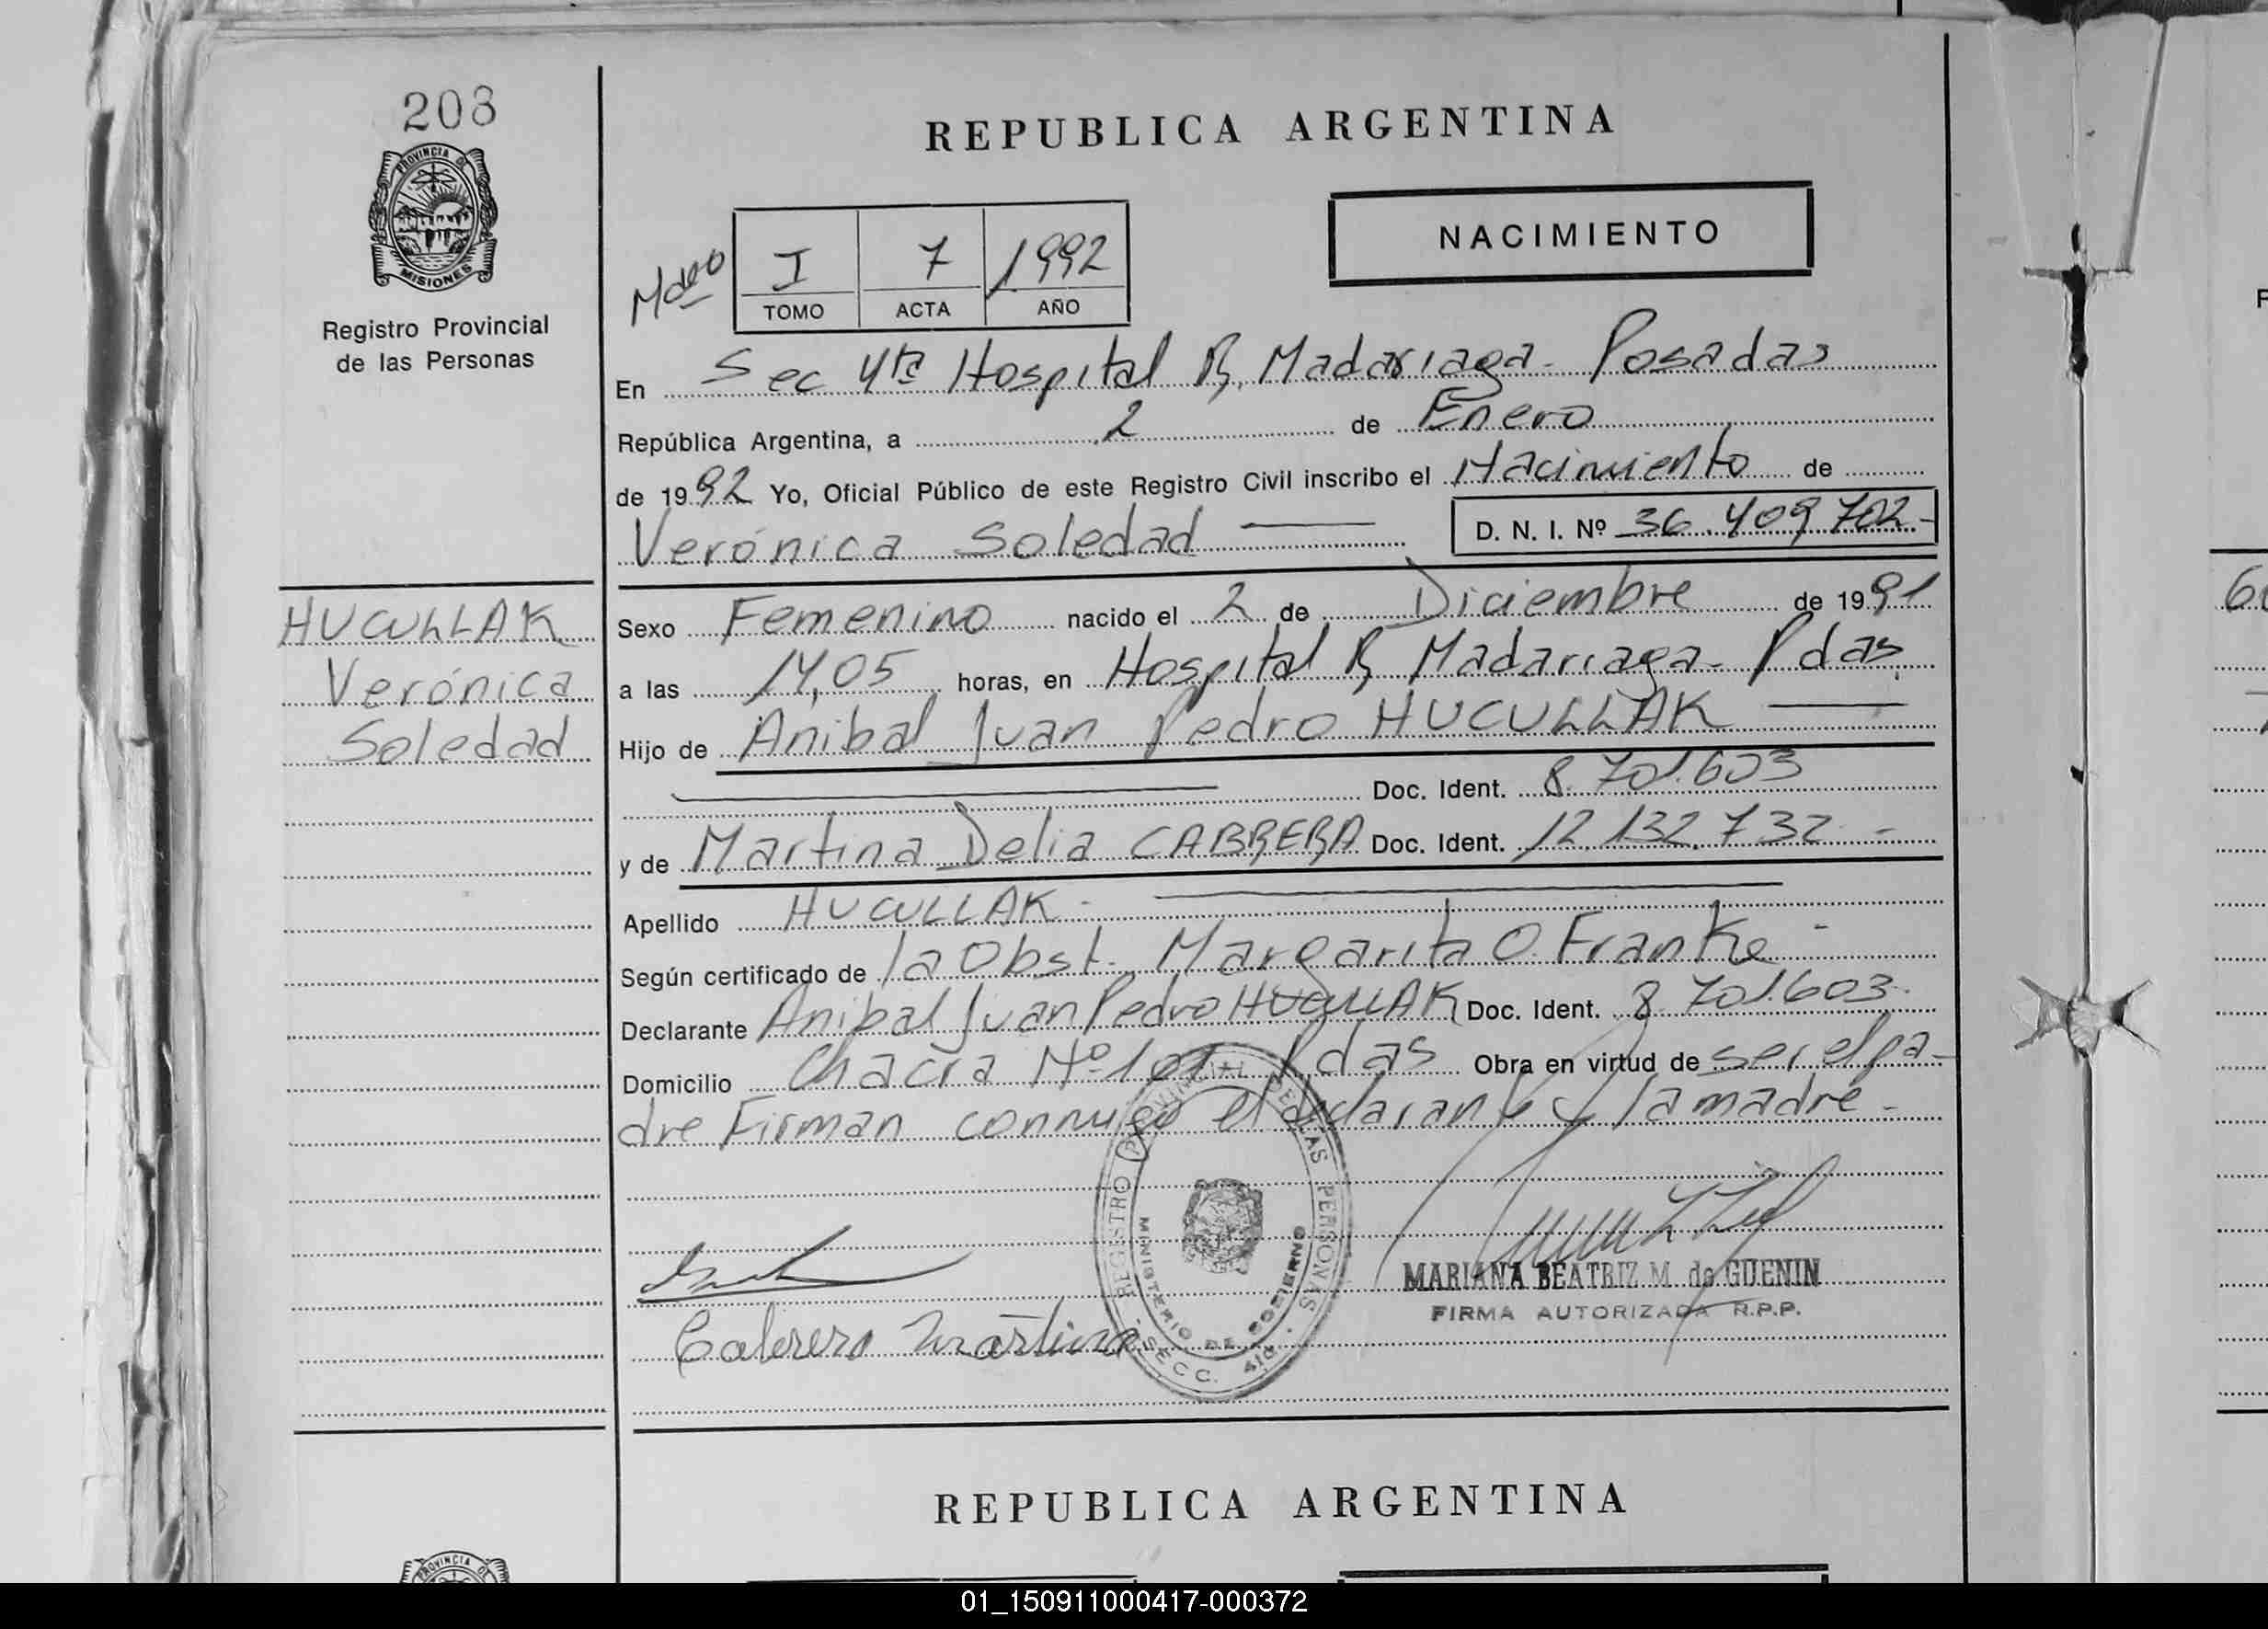 208
PROVINCIA DE
MISIONES
Registro Provincial
de las Personas
HUCULLAK
Verónica
Soledad
REPUBLICA ARGENTINA
NACIMIENTO
I 7 1992
TOMO ACTA AÑO
En Sec 4ta Hospital R. Madariaga - Posadas
República Argentina, a 2 de Enero
de 1992 Yo, Oficial Público de este Registro Civil inscribo el Nacimiento de
Verónica Soledad D. N. I. Nº 36.409.702-
Sexo Femenino nacido el 2 de Diciembre de 1991
a las 14,05 horas, en Hospital R. Madariaga - Pdas,
Hijo de Anibal Juan Pedro HUCULLAK
Doc. Ident. 8.701.603
y de Martina Delia CABRERA Doc. Ident. 12.132.732-
Apellido HUCULLAK -
Según certificado de la Obst. Margarita O. Franke -
Declarante Anibal Juan Pedro HUCULLAK Doc. Ident. 8.701.603-
Domicilio Chacra Nº 101- Pdas Obra en virtud de ser el pa-
dre Firman conmigo el declarante y la madre -
REGISTRO PROVINCIAL DE LAS PERSONAS
MINISTERIO DE GOBIERNO
SECC. 4ta.
MARIANA BEATRIZ M. de GUENIN
FIRMA AUTORIZADA R.P.P.
Cabrera Martina
REPUBLICA ARGENTINA
PROVINCIA DE
01_150911000417-000372